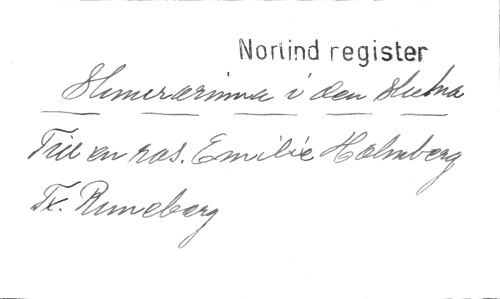 Norlind register
Slumrarinna i den slutna
Till en ros. Emilie Holmberg
Tx. Runeberg